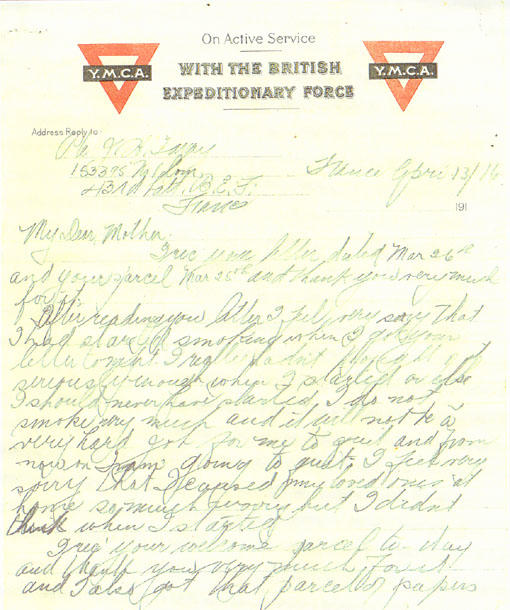 On Active Service
Y.M.C.A.
WITH THE BRITISH
EXPEDITIONARY FORCE
Y.M.C.A.
Address Reply to
France April 13/16
153395
43rd Batt. B.E.F.
France
191
My Dear Mother.
I rec your letter dated Mar 26th
and your parcel Mar 25th and thank you very much
for it.
After reading your letter I feel very sorry that
I had started smoking when I got your
letter to night. I hadn't
seriously enough when I started or else
I should never have started, I do not
smoke very much and it will not be a
very hard job for me to quit and from
now on I am going to quit. I feel very
sorry that I caused my loved ones at
home so much worry but I didnt
think when I started
I rec' your welcome parcel to-day
and thank you very much for it
and I also got that parcel of papers